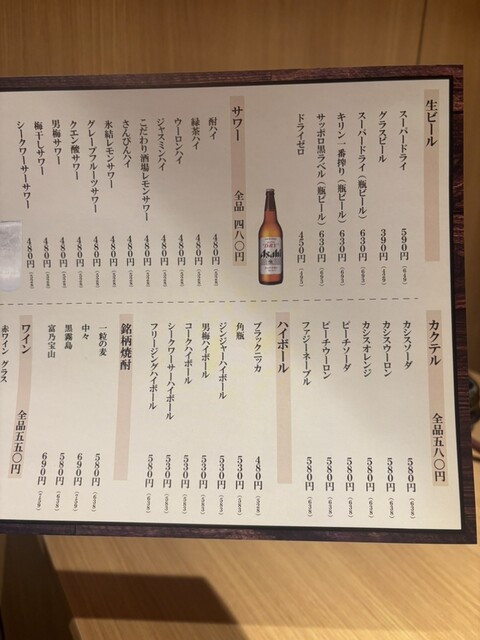 生ビール
スーパードライ 590円(649)
グラスビール 390円
スーパードライ(瓶ビール) 630円(693)
キリン一番搾り(瓶ビール) 630円(693)
サッポロ黒ラベル(瓶ビール) 630円(693)
ドライゼロ 450円(495)
Asahi
サワー 全品 四八〇円
酎ハイ 480円
緑茶ハイ 480円
ウーロンハイ 480円
ジャスミンハイ 480円
こだわり酒場レモンサワー 480円
さんぴんハイ 480円
氷結レモンサワー 480円
グレープフルーツサワー 480円
クエン酸サワー 480円
男梅サワー 480円
梅干しサワー 480円
シークワーサーサワー 480円
カクテル 全品五八〇円
カシスソーダ 580円(638)
カシスウーロン 580円(638)
カシスオレンジ 580円(638)
ピーチソーダ 580円(638)
ピーチウーロン 580円(638)
ファジーネーブル 580円(638)
ハイボール
ブラックニッカ 480円(528)
角瓶 530円(583)
ジンジャーハイボール 530円(583)
男梅ハイボール 530円(583)
コークハイボール 530円(583)
シークワーサーハイボール 530円(583)
フリージングハイボール 580円(638)
銘柄焼酎
一粒の麦 580円(638)
中々 690円(759)
黒霧島 580円(638)
富乃宝山 690円(759)
ワイン 全品五五〇円
赤ワイン グラス